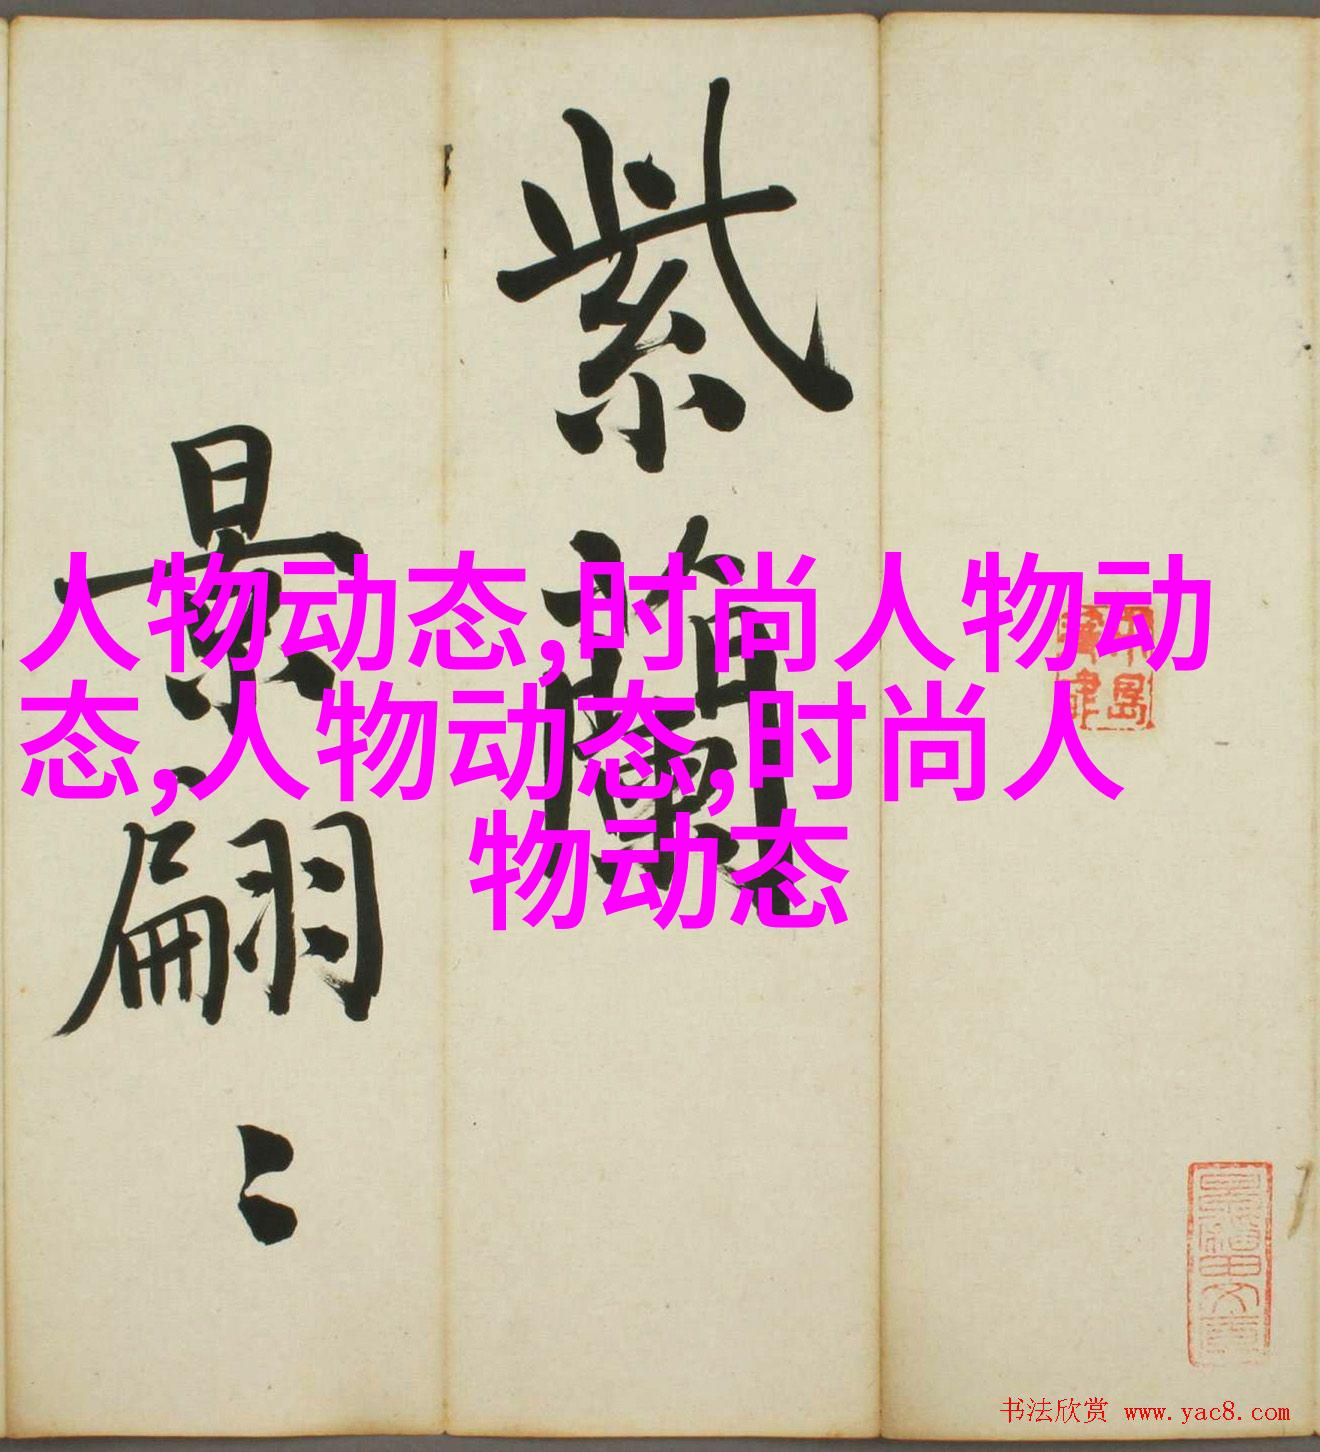 人物动态,时尚人物动
态,人物动态,时尚人
物动态
紫
景翩々
书法欣赏 www.yac8.com